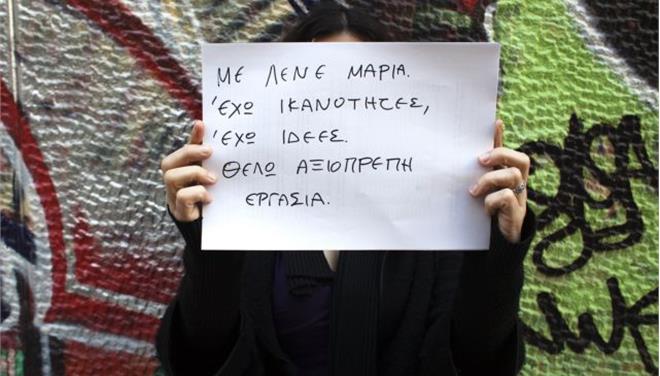 ΜΕ ΛΕΝΕ ΜΑΡΙΑ.
Έχω ΙΚΑΝΟΤΗΤΕΣ,
Έχω ΙΔΕΕΣ.
ΘΕΛΩ ΑΞΙΟΠΡΕΠΗ
ΕΡΓΑΣΙΑ.